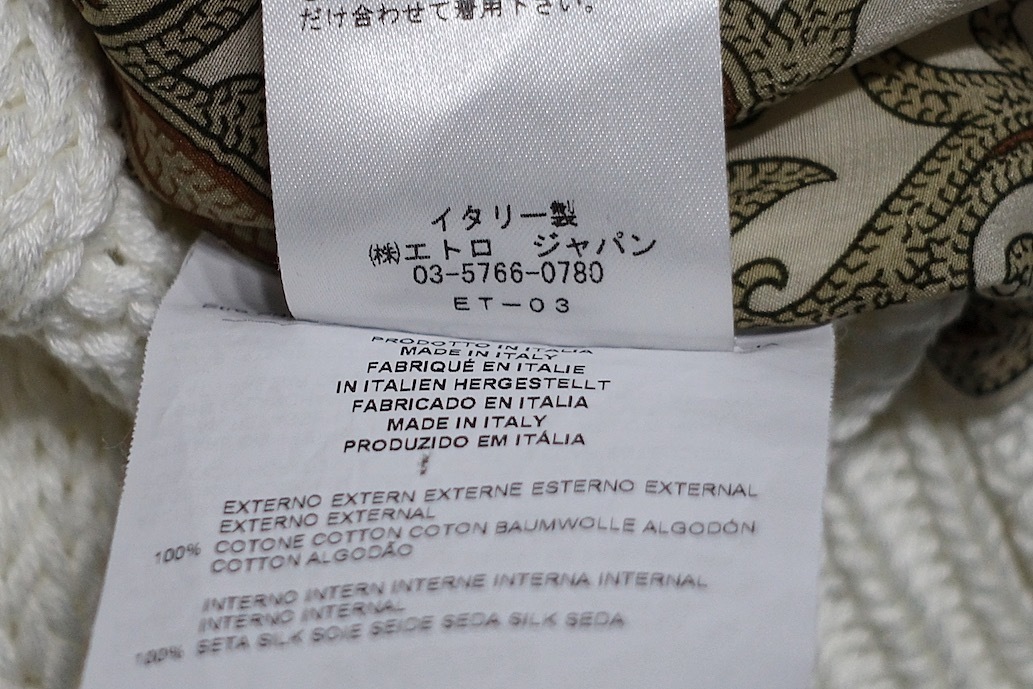 だけ合わせて着用下さい。
イタリー製
㈱エトロ ジャパン
03-5766-0780
ET-03
PRODOTTO IN ITALIA
MADE IN ITALY
FABRIQUÉ EN ITALIE
IN ITALIEN HERGESTELLT
FABRICADO EN ITALIA
MADE IN ITALY
PRODUZIDO EM ITÁLIA
EXTERNO EXTERN EXTERNE ESTERNO EXTERNAL
EXTERNO EXTERNAL
100% COTONE COTTON COTON BAUMWOLLE ALGODÓN
COTTON ALGODÃO
INTERNO INTERN INTERNE INTERNA INTERNAL
INTERNO INTERNAL
100% SETA SILK SOIE SEIDE SEDA SILK SEDA